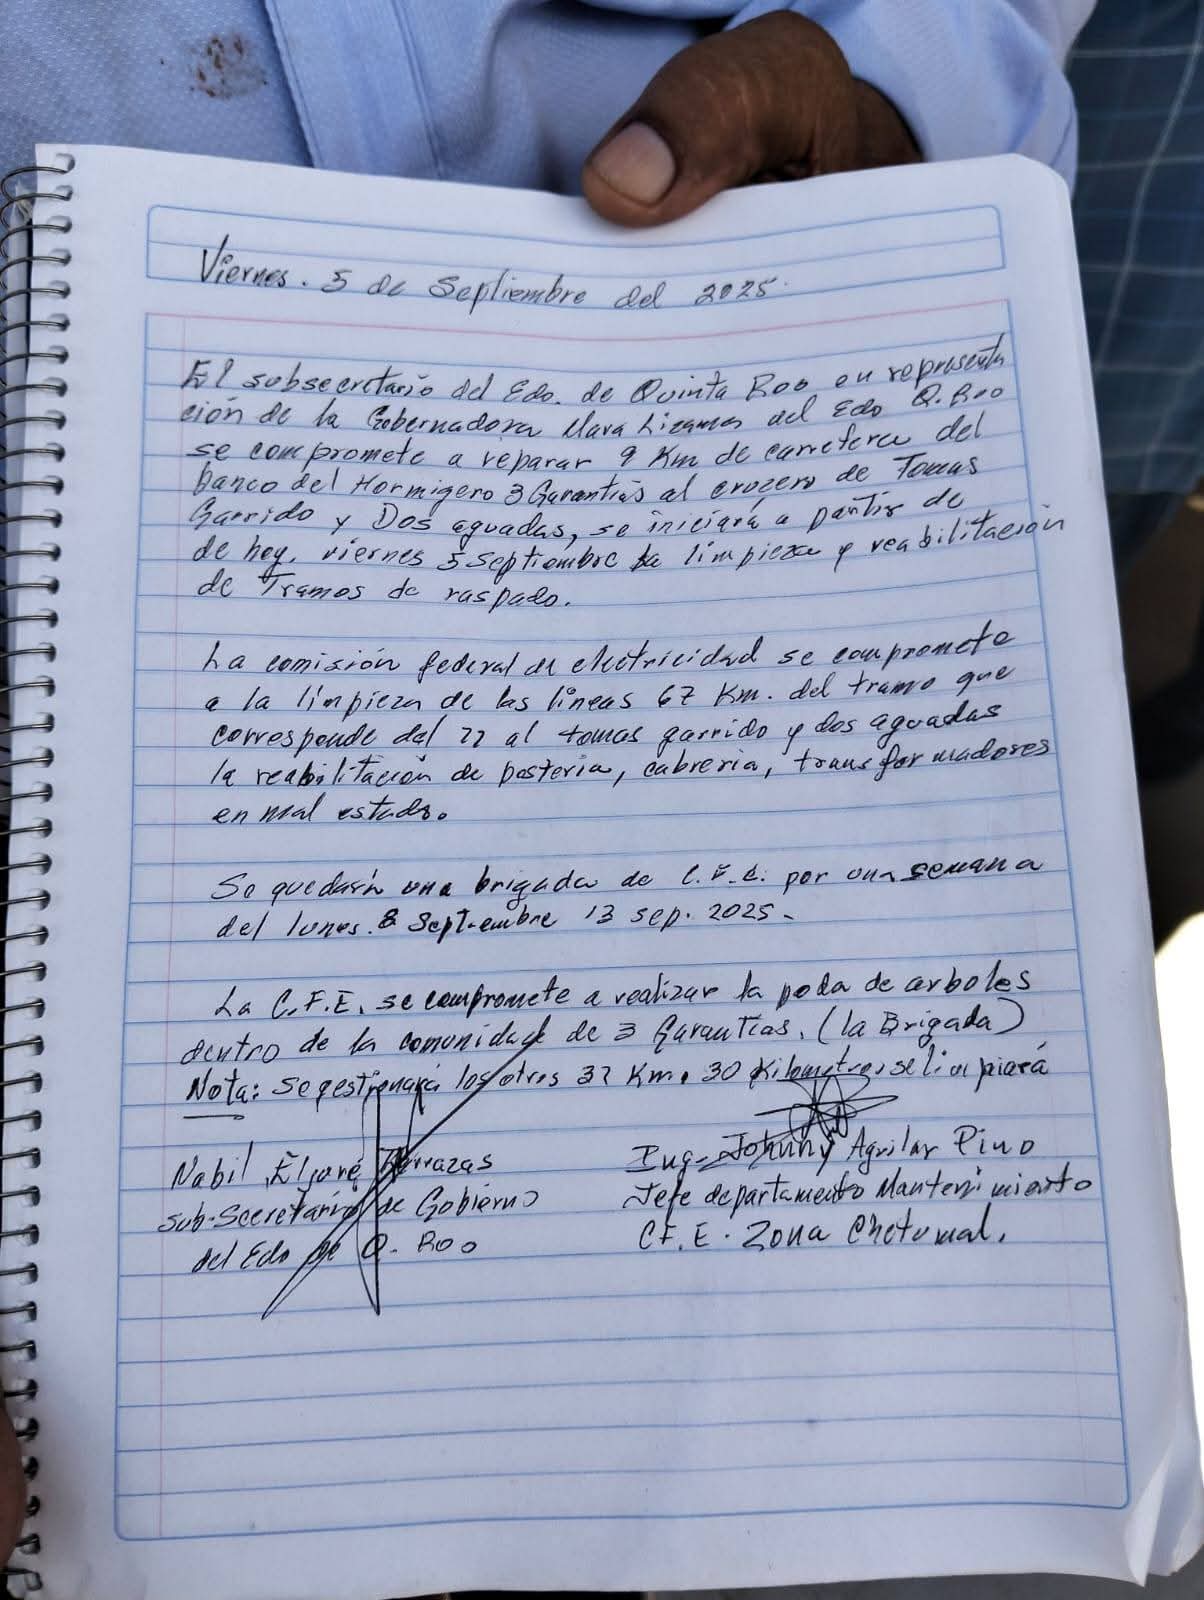 Viernes. 5 de Septiembre del 2025.
El subsecretario del Edo. de Quinta Roo en representa
ción de la Gobernadora Mara Lizamas del Edo Q. Roo
se compromete a reparar 9 Km de carretera del
banco del Hormigero 3 Garantias al crozero de Tomas
Garrido y Dos aguadas, se iniciará a partir de
de hoy, viernes 5 septiembre la limpieza y reabilitación
de Tramos de raspado.
La comisión federal de electricidad se compromete
a la limpieza de las lineas 67 Km. del tramo que
corresponde del 22 al tomas garrido y dos aguadas
la reabilitación de posteria, cabreria, transformadores
en mal estado.
Se quedará una brigada de C.F.E. por una semana
del lunes. 8 Septiembre 13 sep. 2025.
La C.F.E. se compromete a realizar la poda de arboles
dentro de la comunidad de 3 Garantias. (la Brigada)
Nota: se gestionará los otros 37 Km. 30 Kilometros se limpiará
Nabil Eljure Terrazas
sub-Secretario de Gobierno
del Edo de Q. Roo
Ing. Johnny Aguilar Pino
Jefe departamento Mantenimiento
C.F.E. Zona Chetumal.